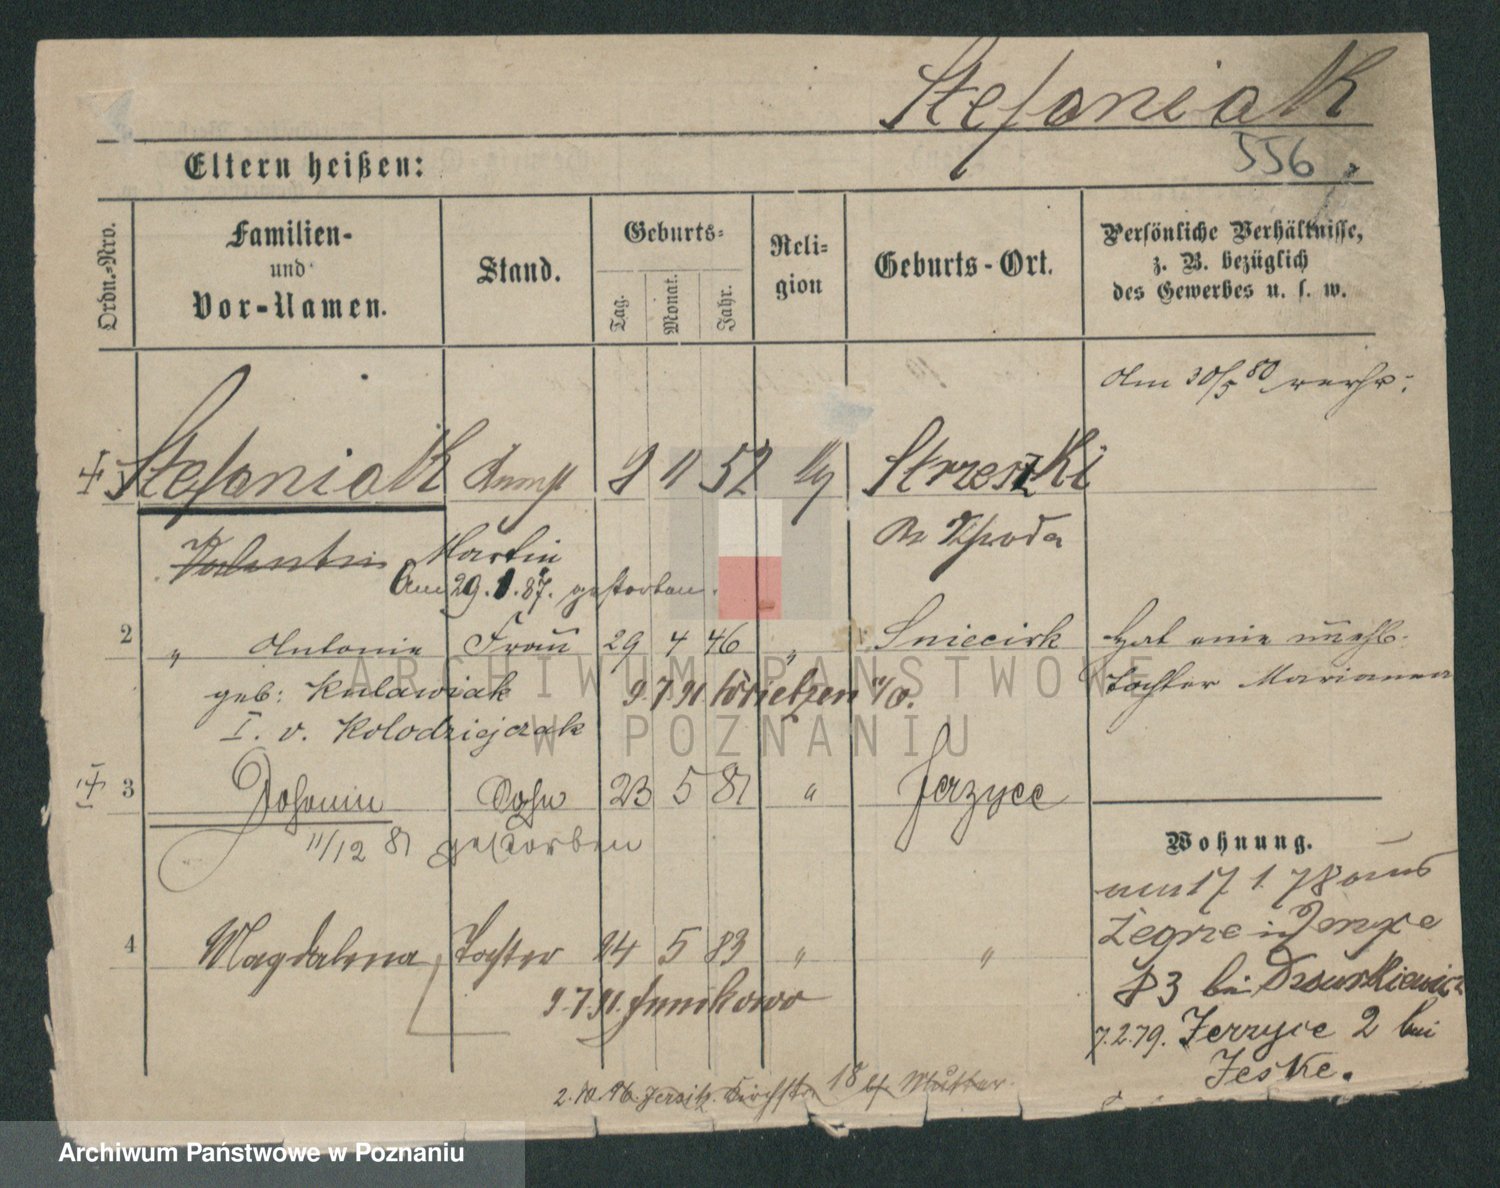 Stefaniak
556
Eltern heißen:
Ordn.-Nro.
Familien-
und
Vor-Namen.
Stand.
Geburts-
Tag.
Monat.
Jahr.
Reli-
gion
Geburts-Ort.
Persönliche Verhältnisse,
z. B. bezüglich
des Gewerbes u. s. w.
Am 30/5 80 verh:
Stefaniak 9 11 52 Strzeszki
Kr Schroda
Valentin Martin
Am 29. 1. 87. gestorben.
2 " Antonie Frau 29 4 46 " Sniecisk
Hat eine unehl.
geb: Kulawiak 9.7.91. Wrietzen a/O.
Tochter Marianna
I. v. Kolodziejczak
3 Sohn 23 5 81 " Jerzyce
11/12 81 gestorben
Wohnung.
am 17 1 78 aus
Zegrze in Jerzyce
4 Magdalena, Tochter 24 5 83 " "
83 bei
9.7.91. Junikowo
7.2.79. Jerzyce 2 bei
Jeske.
2.10.96. Jersitz. Kirchstr. 18 bei Mutter.
ARCHIWUM PAŃSTWOWE
W POZNANIU
Archiwum Państwowe w Poznaniu